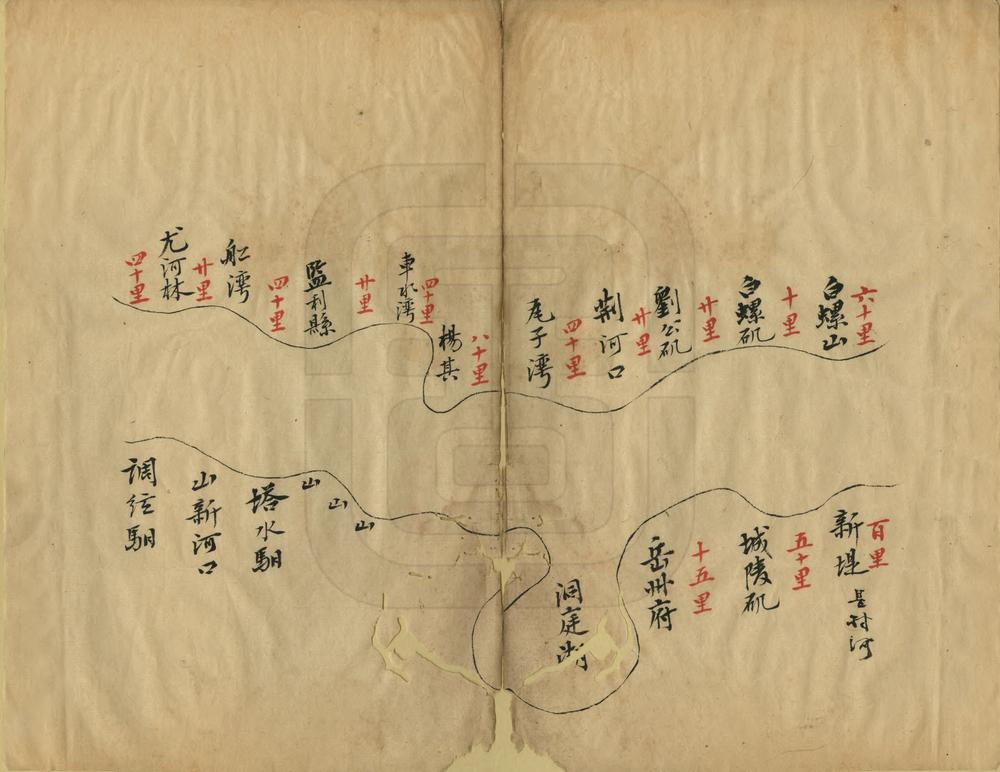 六十里
白螺山
十里
白螺矶
廿里
劉公矶
廿里
荆河口
四十里
尾子湾
八十里
楊其
四十里
車水湾
廿里
監利縣
四十里
舡湾
廿里
尤河林
四十里
百里
新堤
五十里
城陵矶
十五里
岳州府
洞庭湖
山
山
山
塔水馹
山新河口
调弦馹